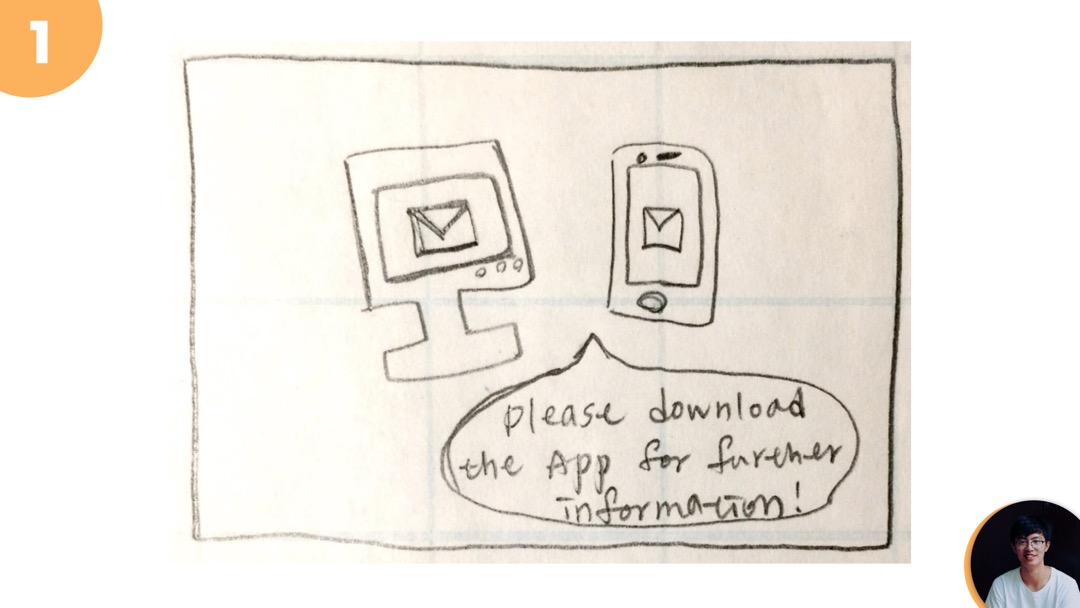 1
please download
the App for further
information!